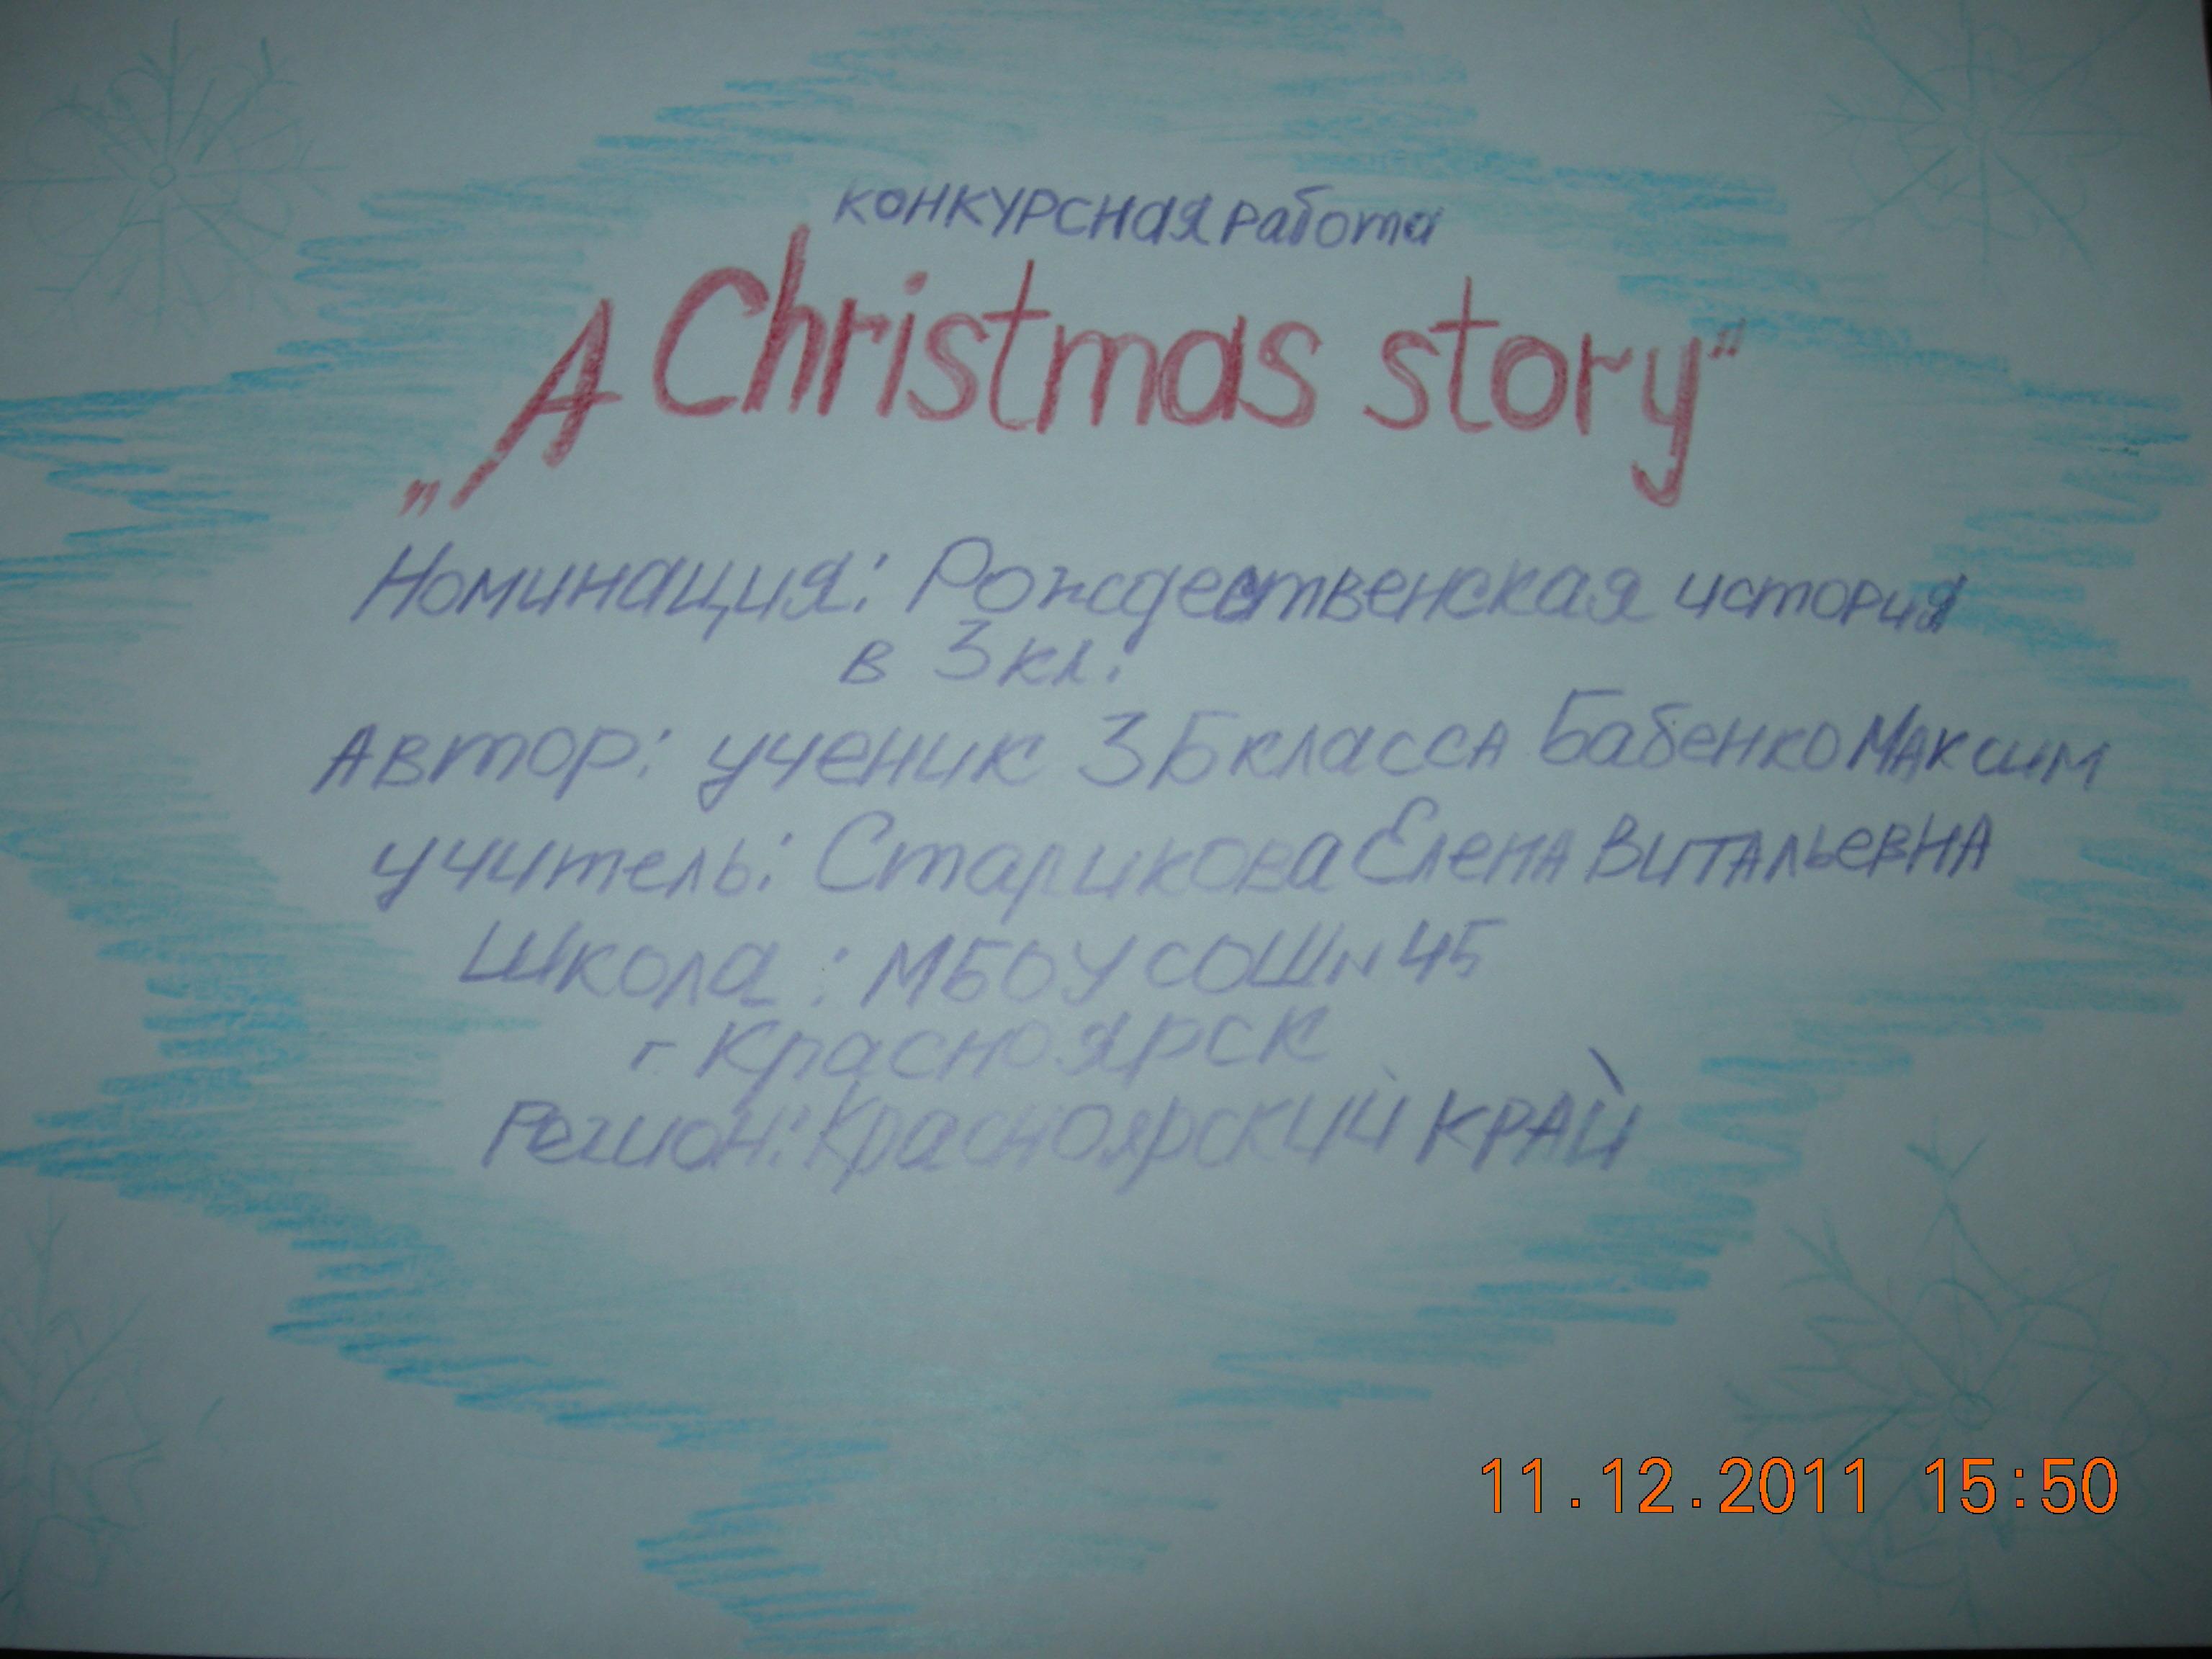 конкурсная работа
„A Christmas story“
Номинация: Рождественская история
в 3 кл.
Автор: ученик 3Б класса Бабенко Максим
учитель: Старикова Елена Витальевна
Школа: МБОУ СОШ N 45
г Красноярск
Регион: Красноярский край
11.12.2011 15:50